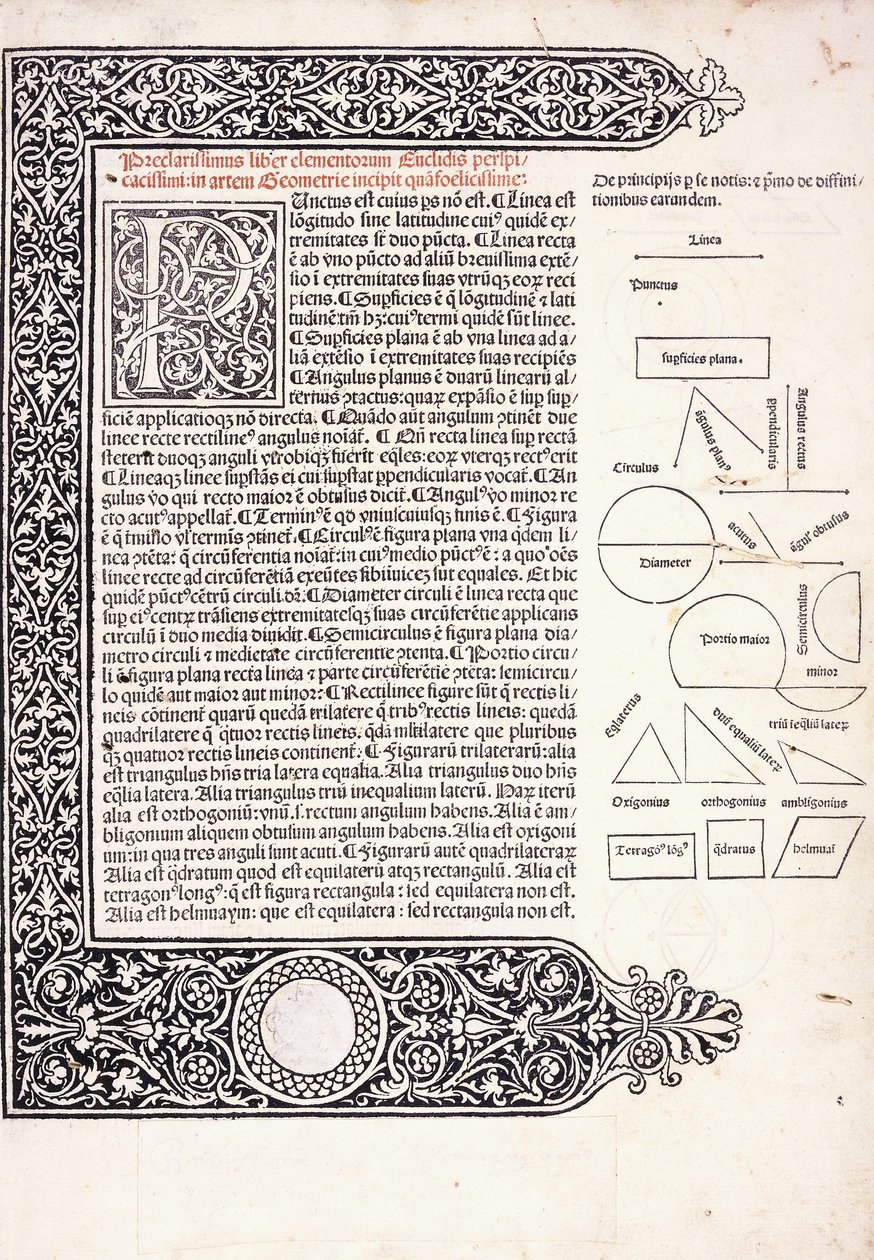 Preclarissimus liber elementorum Euclidis perspi/
cacissimi: in artem Geometrie incipit quãfoelicissime:
PUnctus est cuius ps nõ est. ¶Linea est
lõgitudo sine latitudine cuiꝰ quidẽ ex/
tremitates st̃ duo pũcta. ¶Linea recta
ẽ ab vno pũcto ad aliũ breuissima extẽ/
sio ĩ extremitates suas vtrũqꝫ eoꝝ reci
piens. ¶Supficies ẽ q̃ lõgitudinẽ ⁊ lati
tudinẽ tm̃ hꝫ: cuiꝰ termi quidẽ sũt linee.
¶Supficies plana ẽ ab vna linea ad a/
liã extẽsio ĩ extremitates suas recipiẽs
¶Angulus planus ẽ duarũ linearũ al/
ternus ꝯtactus: quaꝝ expãsio ẽ sup sup/
ficiẽ applicatioqꝫ nõ directa. ¶Quãdo aũt angulum ꝯtinẽt due
linee recte rectilineꝰ angulus noiat̃. ¶Qñ recta linea sup rectã
steterit duoqꝫ anguli vtrobiqꝫ fuerit eq̃les: eoꝝ vterqꝫ rectꝰ erit
¶Lineaqꝫ linee supstãs ei cui supstat ppendicularis vocat̃. ¶An
gulus vo qui recto maior ẽ obtusus dicit̃. ¶Angulꝰ vo minor re
cto acutꝰ appellat̃. ¶Terminꝰ ẽ qd vniuscuiusqꝫ finis ẽ. ¶Figura
ẽ q̃ tmino vl terminis ꝯtinet̃. ¶Circulꝰ ẽ figura plana vna q̃dem li/
nea ꝯtẽta: q̃ circũferentia noiat̃: in cuiꝰ medio pũctꝰ ẽ: a quo oẽs
linee recte ad circũferẽtiã exeũtes sibiinuicẽ sut equales. Et hic
quidẽ pũctꝰ cẽtrũ circuli dr̃. ¶Diameter circuli ẽ linea recta que
sup eiꝰ centꝝ trãsiens extremitatesqꝫ suas circũferẽtie applicans
circulũ ĩ duo media diuidit. ¶Semicirculus ẽ figura plana dia/
metro circuli ⁊ medietate circũferentie ꝯtenta. ¶Portio circu/
li ẽ figura plana recta linea ⁊ parte circũferẽtie ꝯtẽta: semicircu/
lo quidẽ aut maior aut minor. ¶Rectilinee figure sũt q̃ rectis li/
neis cõtinent̃ quarũ quedã trilatere q̃ tribꝰ rectis lineis: quedã
quadrilatere q̃ q̃tuor rectis lineis. q̃dã mltilatere que pluribus
qꝫ quatuor rectis lineis continent̃. ¶Figurarũ trilaterarũ: alia
est triangulus hñs tria latera equalia. Alia triangulus duo hñs
eq̃lia latera. Alia triangulus triũ inequalium laterũ. Haꝝ iterũ
alia est orthogoniũ: vnũ .s. rectum angulum habens. Alia ẽ am/
bligonium aliquem obtusum angulum habens. Alia est oxigoni
um: in qua tres anguli sunt acuti. ¶Figurarũ autẽ quadrilateraꝝ
Alia est q̃dratum quod est equilaterũ atqꝫ rectangulũ. Alia est
tetragonꝰ longꝰ: q̃ est figura rectangula: sed equilatera non est.
Alia est helmuaym: que est equilatera: sed rectangula non est.
De principijs p se notis: ⁊ pmo de diffini/
tionibus earundem.
Linea
Punctus
supficies plana.
ãgulus planꝰ
ppendicularis
Angulus rectus
Circulus
Diameter
acutus
ãgulꝰ obtusus
Semicirculus
Portio maior
minor
Eq̃laterus
duũ equaliũ lateꝝ
triũ ĩeq̃liũ lateꝝ
Oxigonius
orthogonius
ambligonius
Tetragõꝰ lõgꝰ
q̃dratus
helmuai